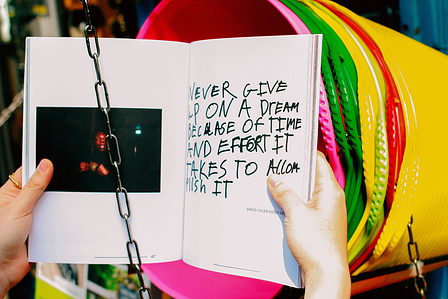 NEVER GIVE
UP ON A DREAM
BECAUSE OF TIME
AND EFFORT IT
TAKES TO ACCOM
PLISH IT
DAVID CALEB